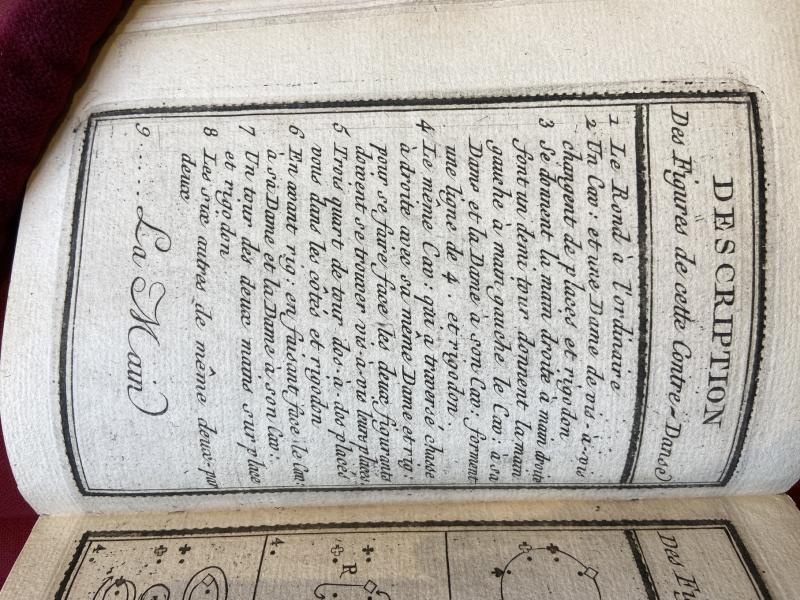 DESCRIPTION
Des Figures de cette Contre-Danse
1 Le Rond à l'ordinaire
2 Un Cav: et une Dame de vis-à-vis
changent de places et rigodon
3 Se donnent la main droite à main droite
font un demi tour donnent la main
gauche à main gauche le Cav: a sa
Dame et la Dame à son Cav: forment
une ligne de 4. et rigodon
4 Le même Cav: qui à traversé chasse
à droite avec sa même Dame et rig:
pour se faire face les deux figurants
doivent se trouver vis-a-vis leurs places
5 Trois quart de tour dos-à-dos placés
vous dans les côtés et rigodon
6 En avant rig: en faisant face le Cav:
a sa Dame et la Dame à son Cav:
7 Un tour des deux mains sur place
et rigodon
8 Les six autres de même deux-par
deux
9 .... La Main
Des Fi
4.
4.
R